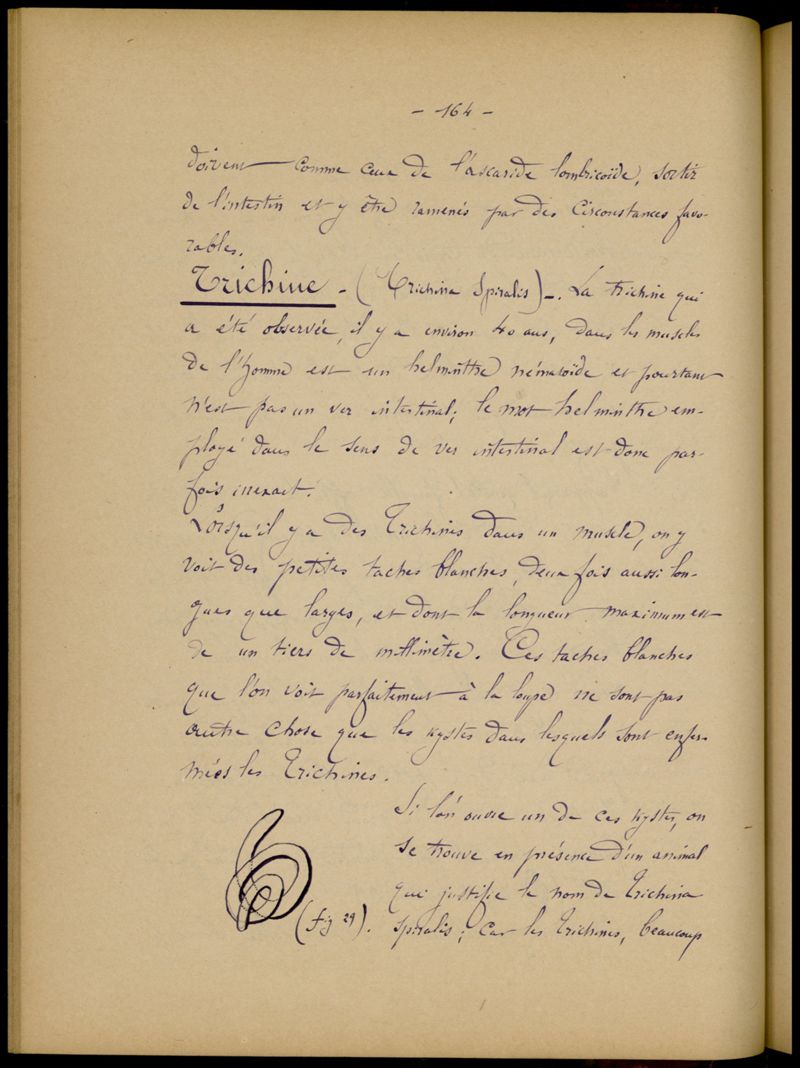 - 164 -
doivent comme ceux de l'ascaride lombricoïde, sortir
de l'intestin et y être ramenés par des circonstances favo-
rables.
Trichine - (Trichina Spiralis) -. La trichine qui
a été observée, il y a environ 40 ans, dans les muscles
de l'homme est un helminthe nématoïde et pourtant
n'est pas un ver intestinal; le mot helminthe em-
ployé dans le sens de ver intestinal est donc par-
fois inexact.
Lorsqu'il y a des Trichines dans un muscle, on y
voit des petites taches blanches, deux fois aussi lon-
gues que larges, et dont la longueur maximum est
de un tiers de millimètre. Ces taches blanches
que l'on voit parfaitement à la loupe ne sont pas
autre chose que les kystes dans lesquels sont enfer-
mées les Trichines.
Si l'on ouvre un de ces kystes, on
se trouve en présence d'un animal
qui justifie le nom de Trichina
(fig 29). spiralis; car les Trichines, beaucoup